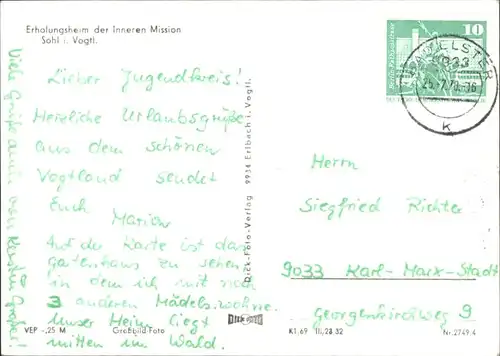 Erholungsheim der Inneren Mission
Sohl i. Vogtl.
Lieber Jugendkreis!
Herzliche Urlaubsgrüße
aus dem schönen
Vogtland sendet
Euch
Marion
Auf der Karte ist das
Gartenhaus zu sehen,
in dem ich mit noch
3 anderen Mädels wohne.
Unser Heim liegt
mitten im Wald.
Viele Grüße auch von Kerstin
VEP -,25 M
Großbild-Foto
Dick-Foto-Verlag 9934 Erlbach i. Vogtl.
DICK FOTO
10
BAD ELSTER
9933
k
Herrn
Siegfried Richter
9033 Karl-Marx-Stadt
Georgenkirchweg 9
K1.69 III/23.32
Nr. 2749.4